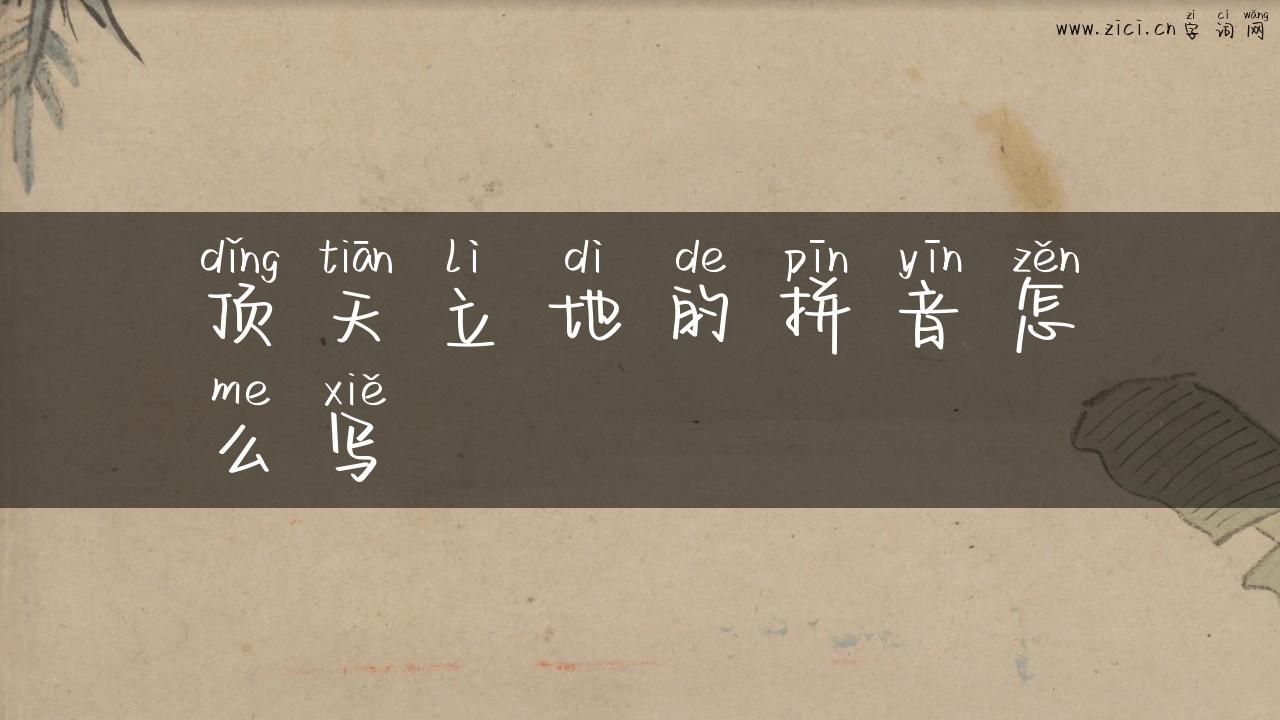 zì cí wǎng
www.zici.cn 字词网
dǐng tiān lì dì de pīn yīn zěn
顶天立地的拼音怎
me xiě
么写